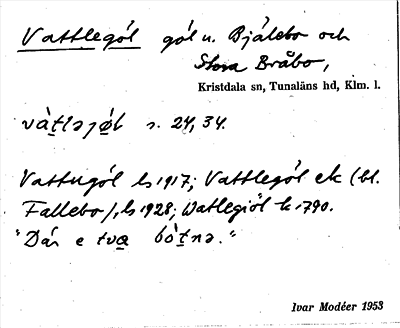 Vattlegöl göl u. Bjälebo och
Stora Bråbo,
Kristdala sn, Tunaläns hd, Klm. l.
s. 24, 34.
Vattugöl ls 1917; Vattlegöl ek (bl.
Fallebo), ls 1928; Watlegiöl k 1790.
"Där e tva bòtnə."
Ivar Modéer 1953